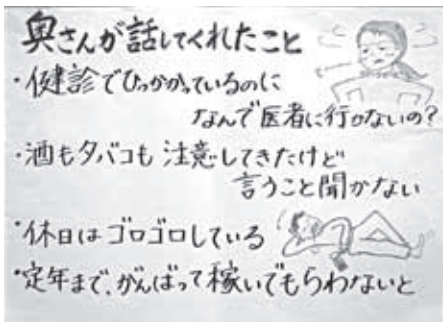 奥さんが話してくれたこと
・健診でひっかかっているのに
なんで医者に行かないの？
・酒もタバコも注意してきたけど
言うこと聞かない
・休日はゴロゴロしている
・定年まで、がんばって稼いでもらわないと